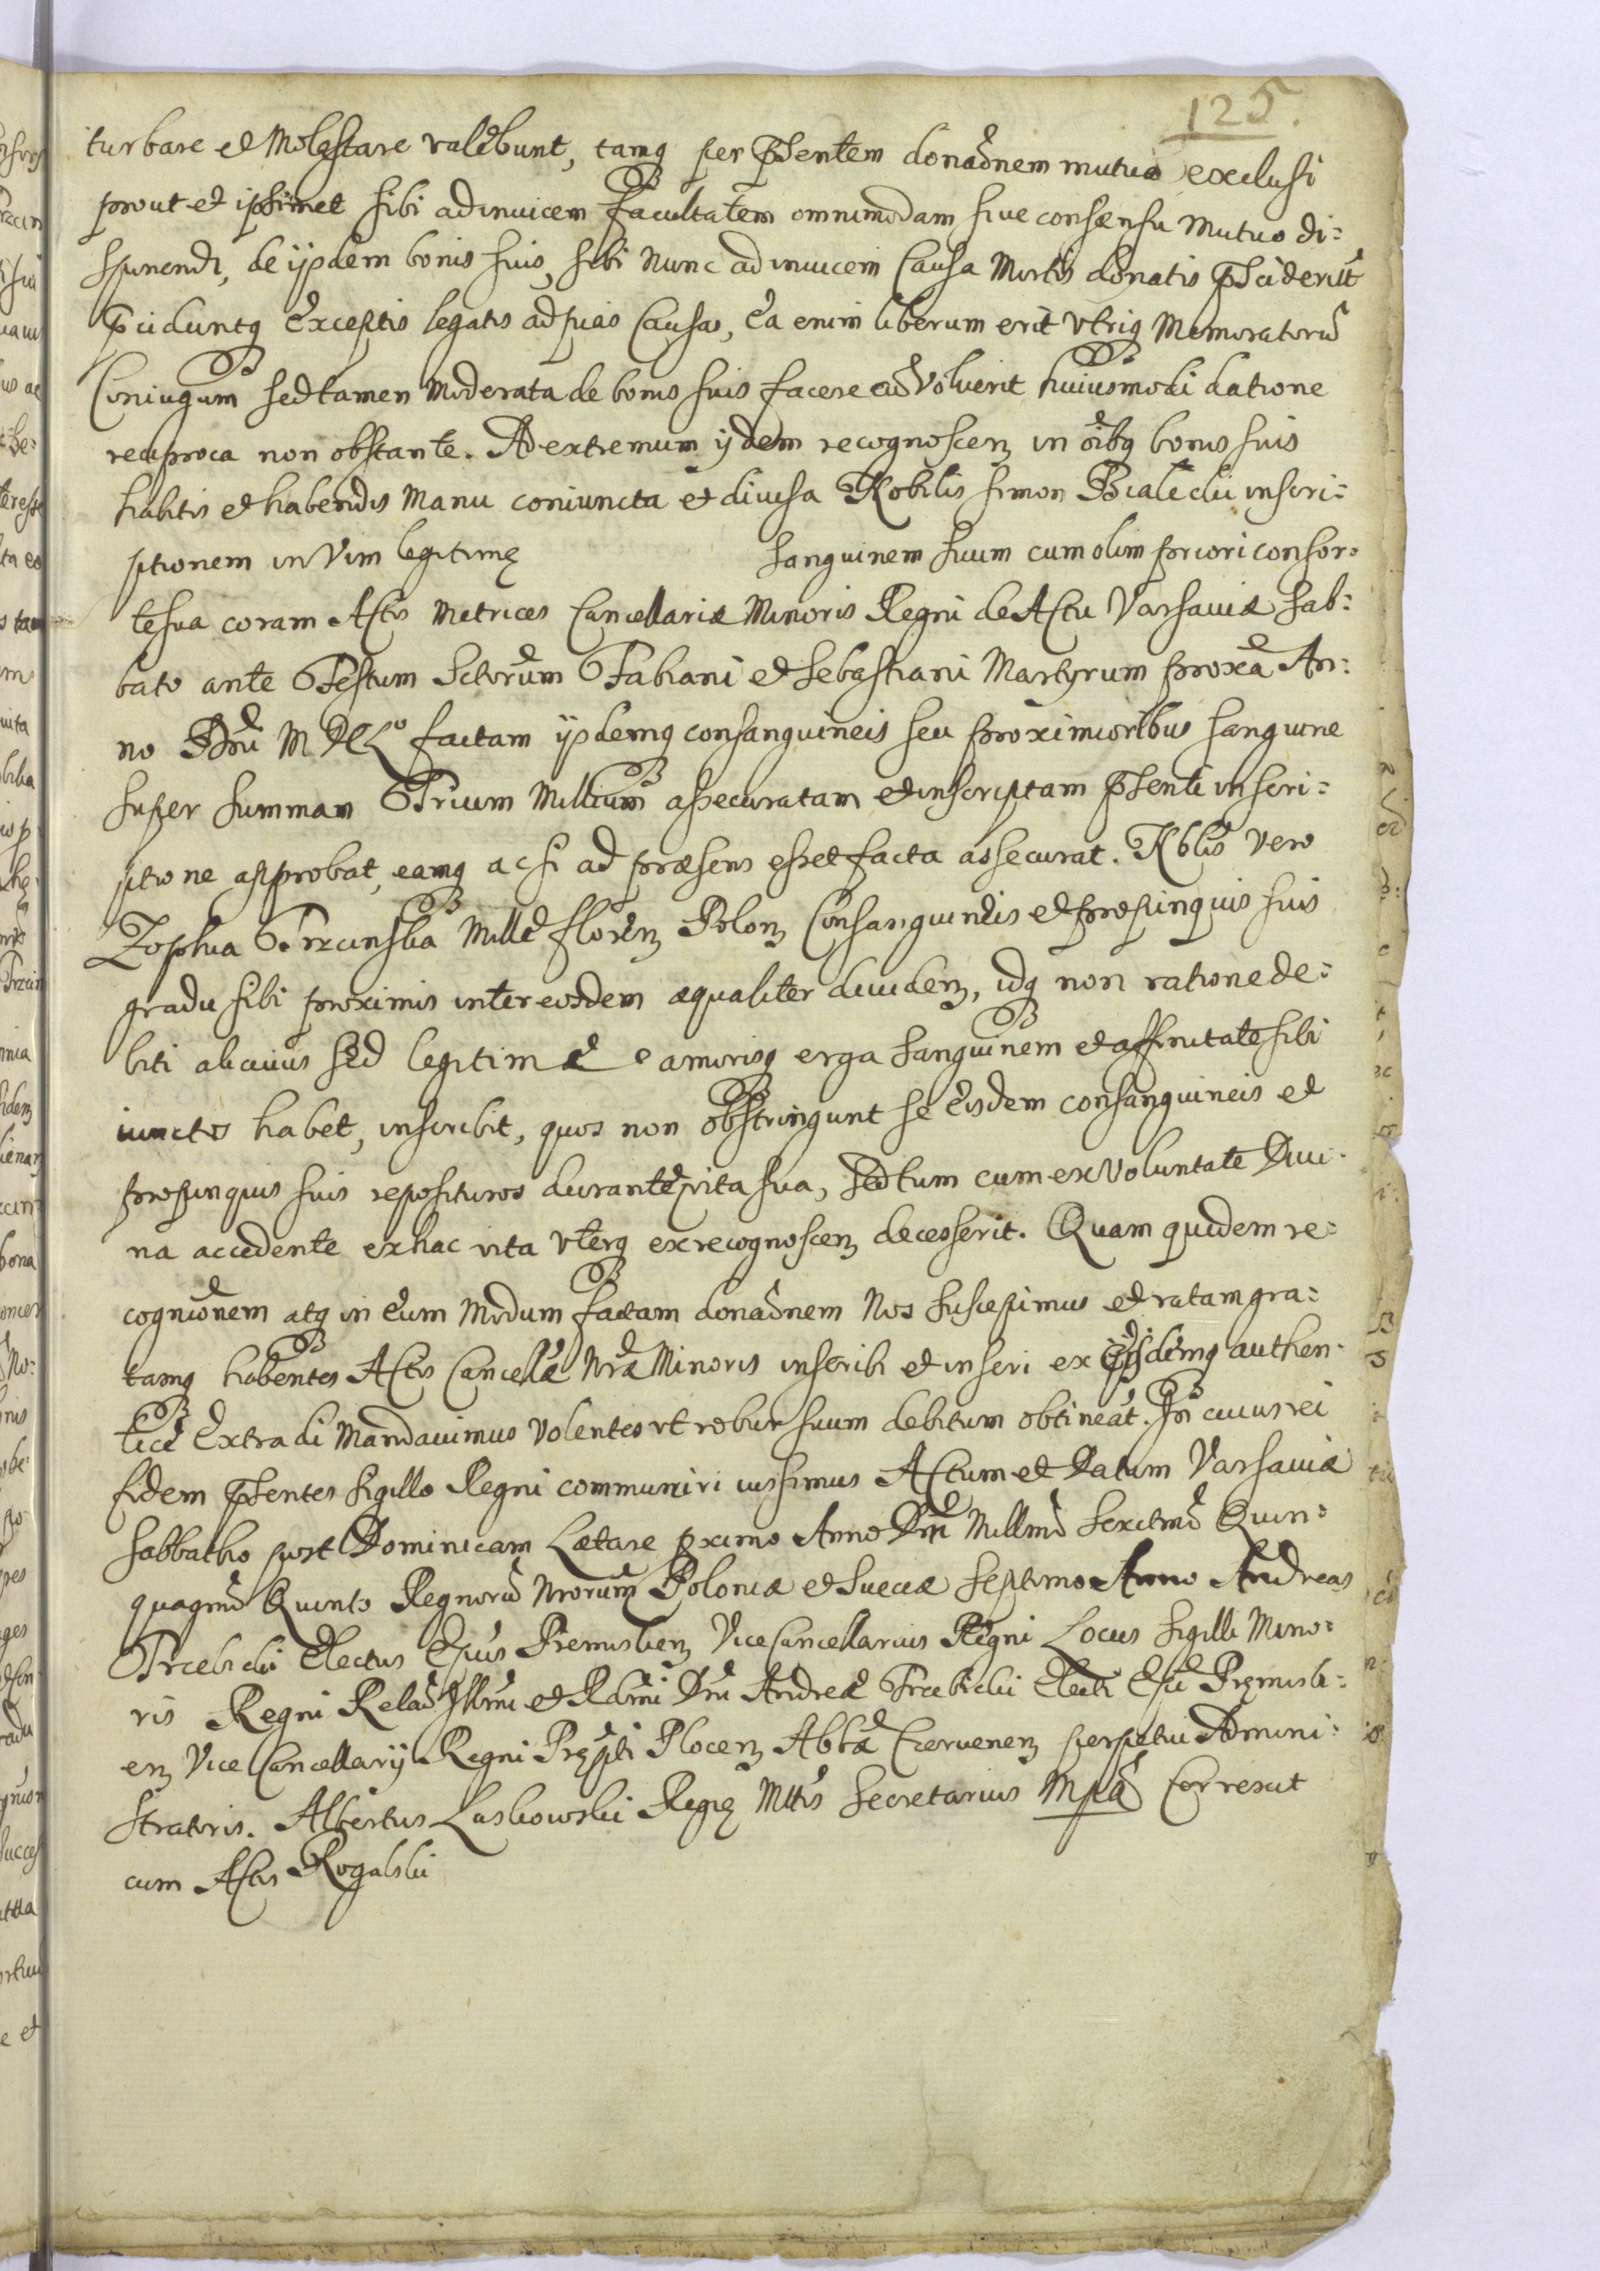 125.
turbare et Molestare valebunt, tamq per pñtem donaõnem mutuo exclusi
prout et ipsimet sibi adinuicem facultatem omnimodam siue consensu Mutuo di=
sponendi, de ijsdem bonis suis, sibi Nunc ad inuicem Causa Mortis donatis
Exceptis legatis ad pias Causas, Ea enim liberum erit Vtriq Memoratorũ
Coniugum sed tamen Moderata de bonis suis facere cũ Voluerit huiusmodi datione
reciproca non obstante. Ad extremum ijdem recognoscen in oĩbq bonis suis
habitis et habendis Manu coniuncta et diuisa Nobilis Simon Bialecki inscri=
ptionem in Vim legitimę sanguinem suum cum olim priori consor=
te sua coram Actis Metrices Cancellariæ Minoris Regni de Actu Varsauiæ Sab=
bato ante Festum Sctorum Fabiani et Sebastiani Martyrum proxã An=
no Dñi M DC Lo factam ijsdemq consanguineis seu proximioribus sanguine
super summam Trium Millium assecuratam et inscriptam pñti inscri=
ptione approbat, eamq ac si ad præsens esset facta assecurat. Nblis Vero
Zophia Trzcinska Mille floren Polon Consanguineis et propinquis suis
gradu sibi proximis inter eosdem æqualiter diuiden, idq non ratione de=
biti alicuius sed legitimæ amorisq erga sanguinem et affinitate sibi
iunctos habet, inscribit, quos non obstringunt se Eisdem consanguineis et
propinquis suis reposituros durante vita sua, sed tum cum ex Voluntate Diui=
na accedente ex hac vita Vterq ex recognoscen decesserit. Quam quidem re=
cogniõnem atq in Eum Modum factam donaõnem Nos suscepimus et ratam gra=
tamq habentes Actis Cancellæ Nræ Minoris inscribi et inseri ex authen=
tice Extradi Mandauimus Volentes vt robur suum debitum obtineãt. In cuius rei
fidem pñtes Sigillo Regni communiri iussimus Actum et Datum Varsauiæ
Sabbatho post Dominicam Lætare pximo Anno Dñi Millmõ Sexctmõ Quin=
quagmõ Quinto Regnorũ Nrorum Poloniæ et Sueciæ Septimo Anno Andreas
Trzebicki Electus Epus Premislien Vice Cancellarius Regni Locus Sigilli Mino=
ris Regni Relaõ Illrmi et Rdmi Dñi Andreæ Trzebicki Electi Epi Pręmisli=
en Vice Cancellarij Regni Prępti Plocen Abbæ Czeruenen perpetui Admini=
stratoris. Albertus Laskowski Regię Mttis Secretarius Mpã Correxit
cum Actis Rogalski